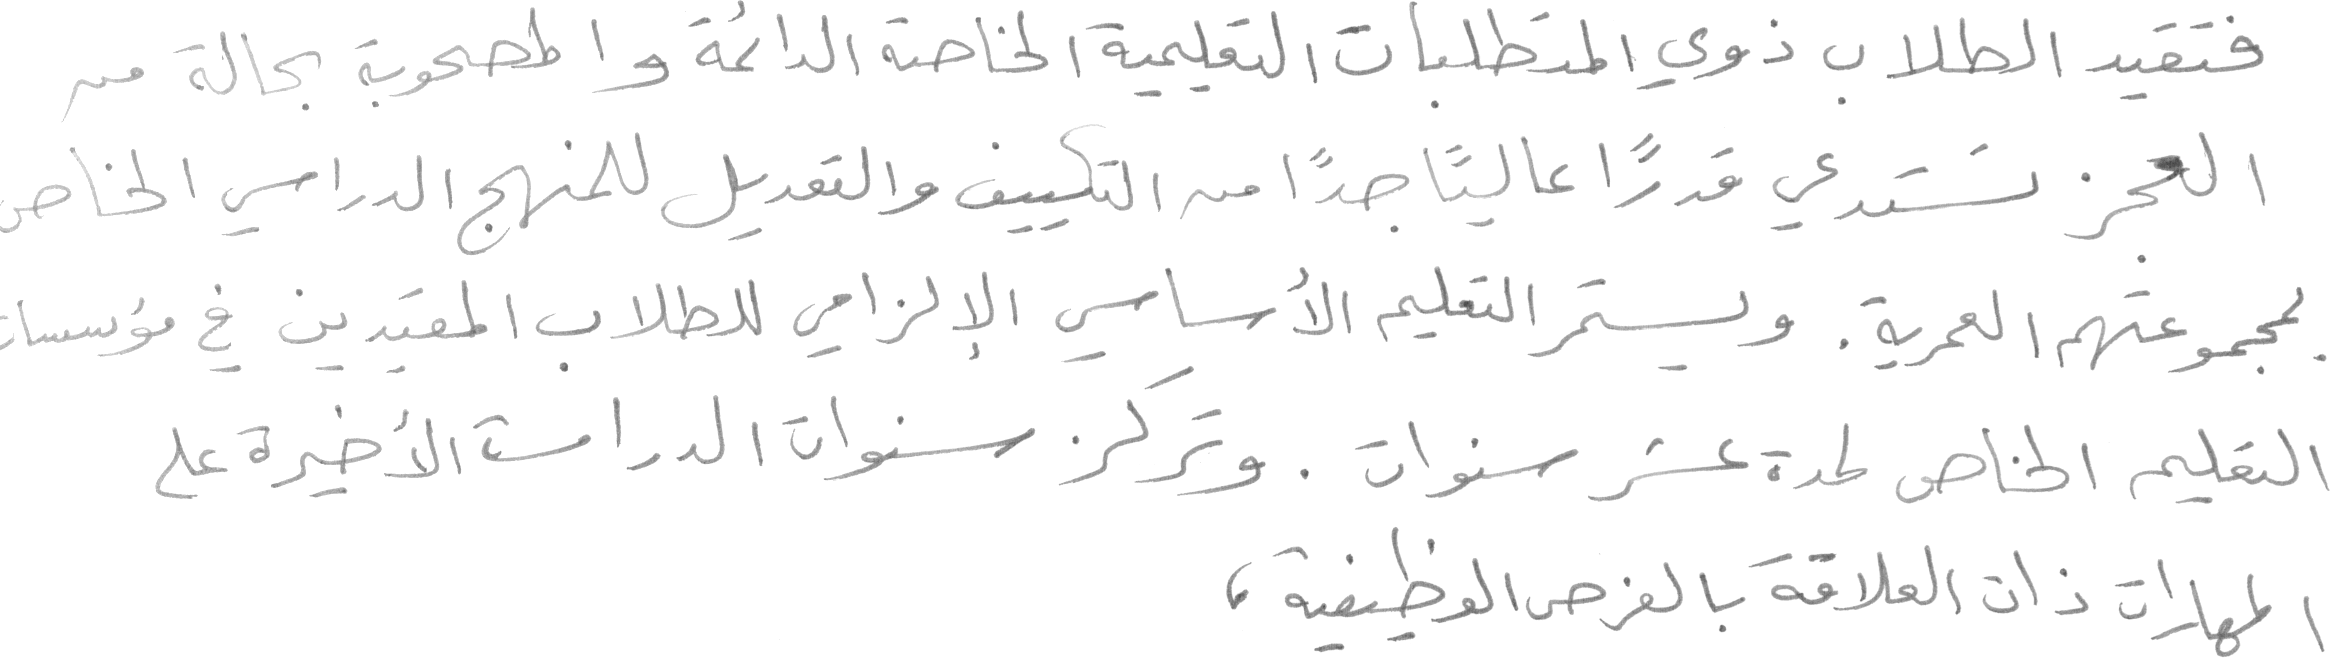 فتقيد الطلاب ذوي المتطلبات التعليمية الخاصة الدائمة والمصحوبة بحالة من
العجز تستدعي قدرًا عاليًا جدًا من التكييف والتعديل للمنهج الدراسي الخاص
بمجموعتهم العمرية. ويستمر التعليم الأساسي الإلزامي للطلاب المقيدين في مؤسسات
التعليم الخاص لمدة عشر سنوات. وتركز سنوات الدراسة الأخيرة على
المهارات ذات العلاقة بالفرص الوظيفية،